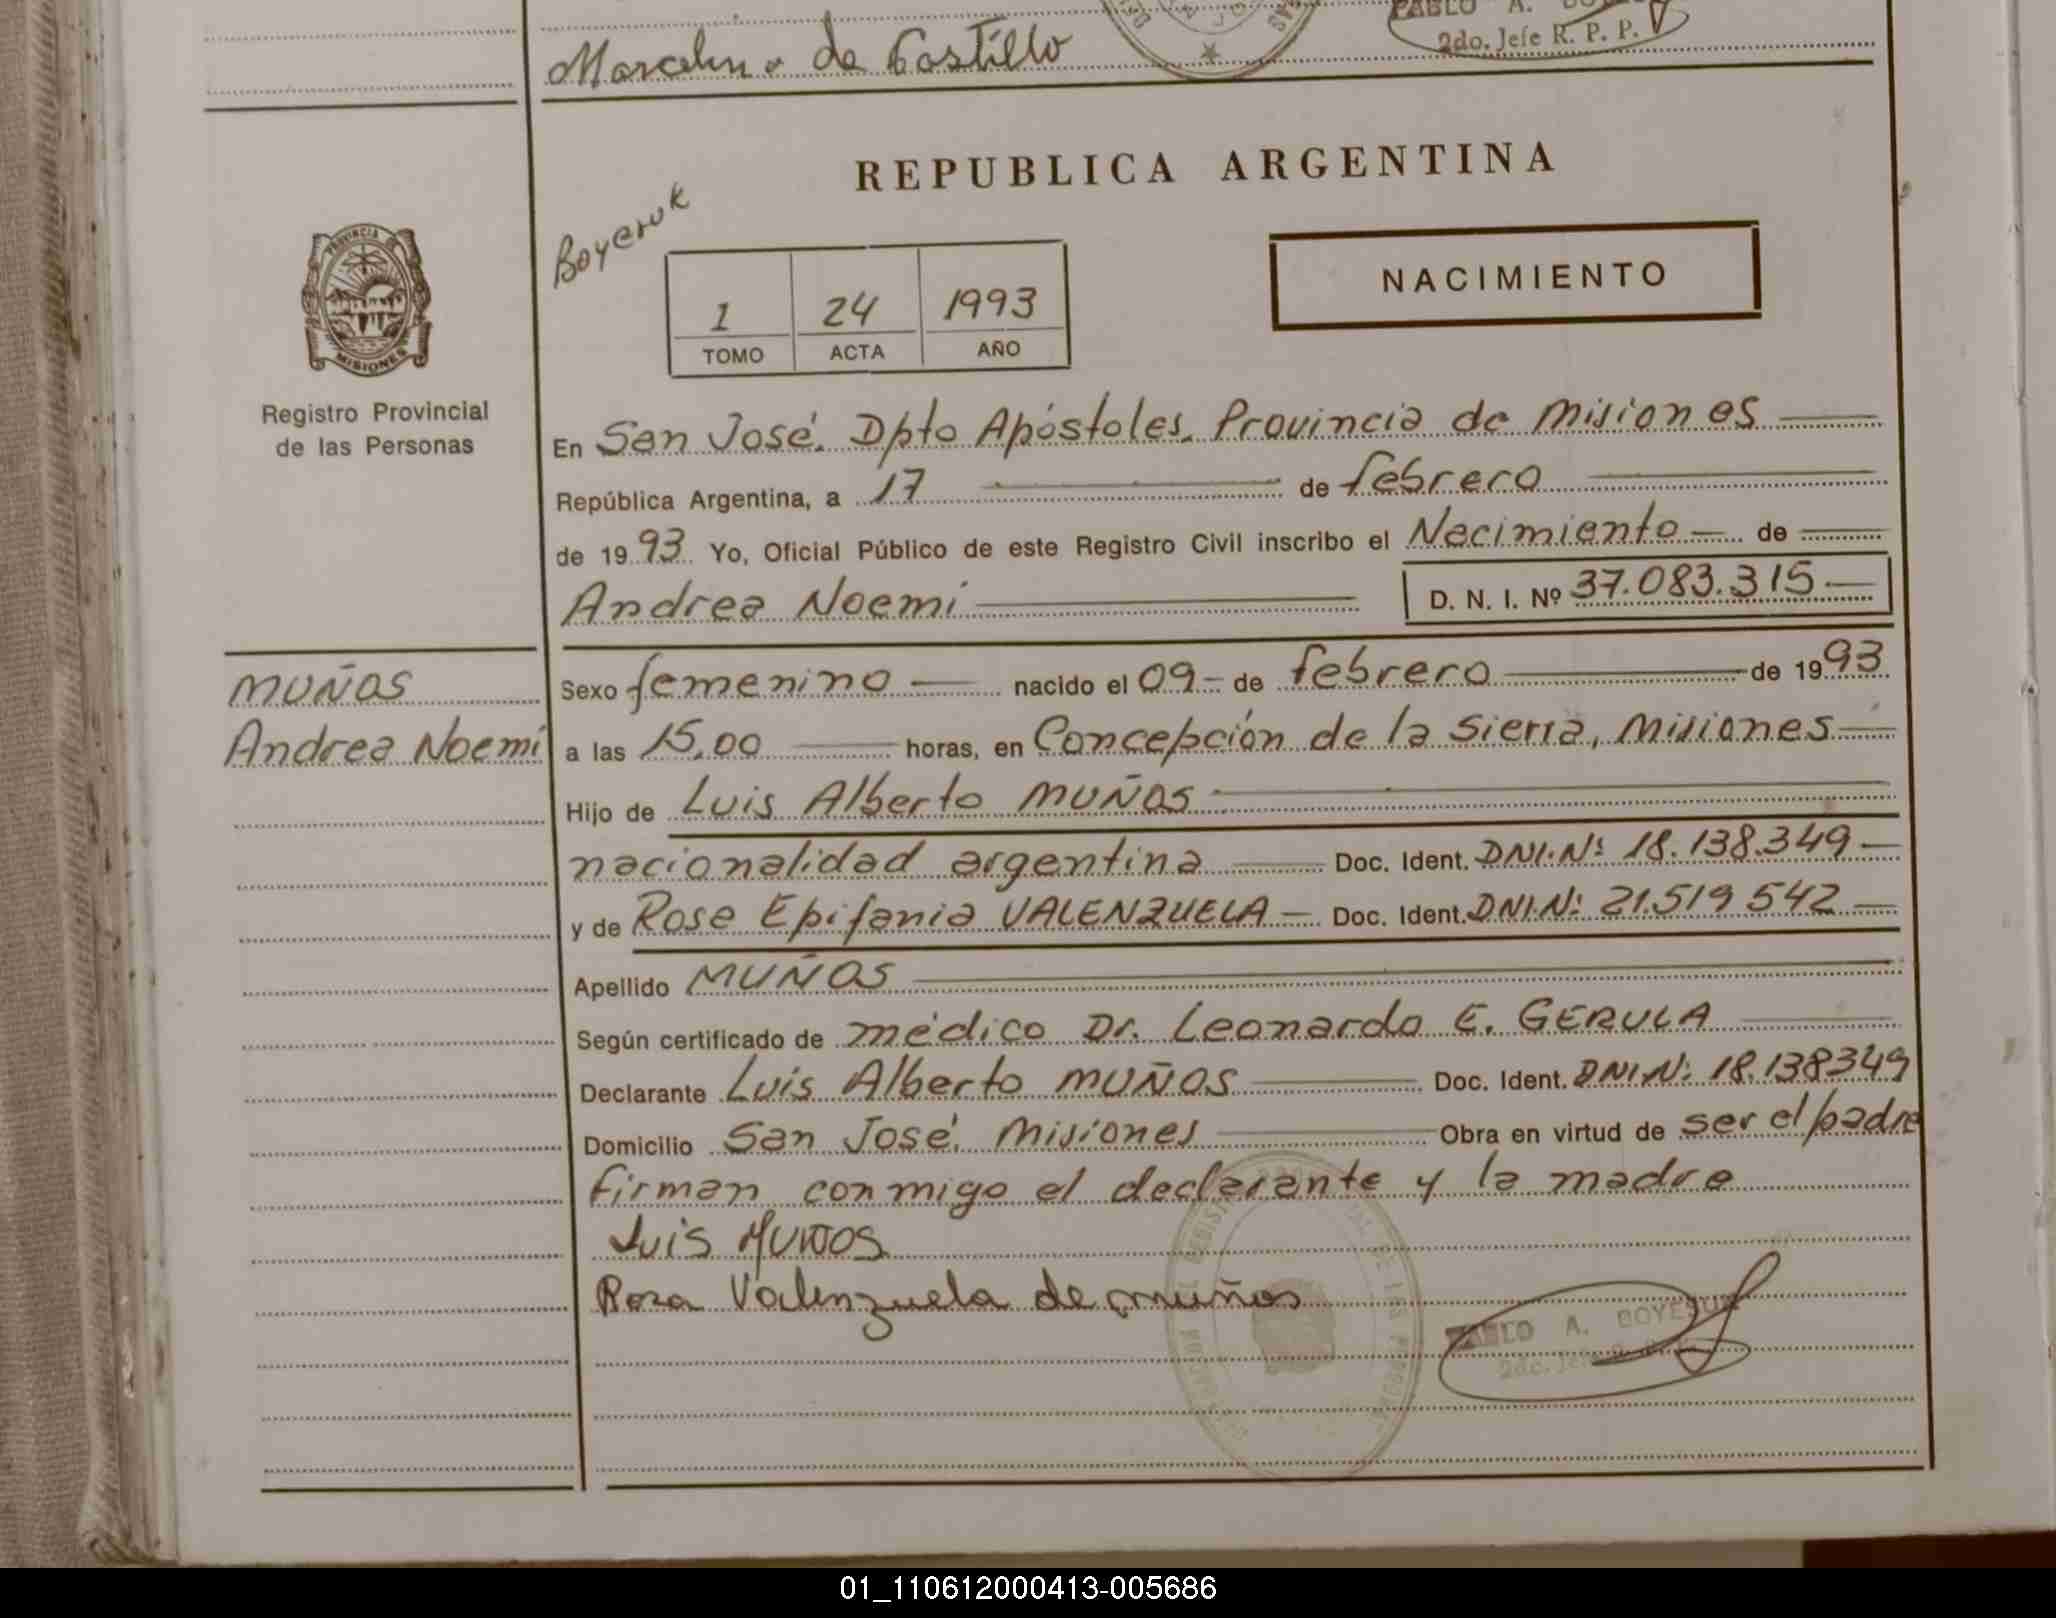 Marcelino de Castillo
PABLO A.
2do. Jefe R. P. P.
REPUBLICA ARGENTINA
Boyeruk
NACIMIENTO
1 24 1993
TOMO ACTA AÑO
PROVINCIA
MISIONES
Registro Provincial
de las Personas
En San José. Dpto Apóstoles. Provincia de Misiones
República Argentina, a 17 de febrero
de 1993 Yo, Oficial Público de este Registro Civil inscribo el Nacimiento de
Andrea Noemi D. N. I. Nº 37.083.315
MUÑOS
Andrea Noemi
Sexo femenino nacido el 09 de febrero de 1993
a las 15,00 horas, en Concepción de la Sierra, Misiones
Hijo de Luis Alberto MUÑOS
nacionalidad argentina Doc. Ident. DNI.Nº 18.138.349
y de Rosa Epifania VALENZUELA Doc. Ident. DNI.N: 21.519 542
Apellido MUÑOS
Según certificado de médico Dr. Leonardo E. GERULA
Declarante Luis Alberto MUÑOS Doc. Ident. DNI.N: 18.138349
Domicilio San José. Misiones Obra en virtud de ser el padre
firman conmigo el declarante y la madre
Luis MUÑOS
Rosa Valenzuela de muños
PABLO A. BOYERUK
2do. Jefe
01_110612000413-005686